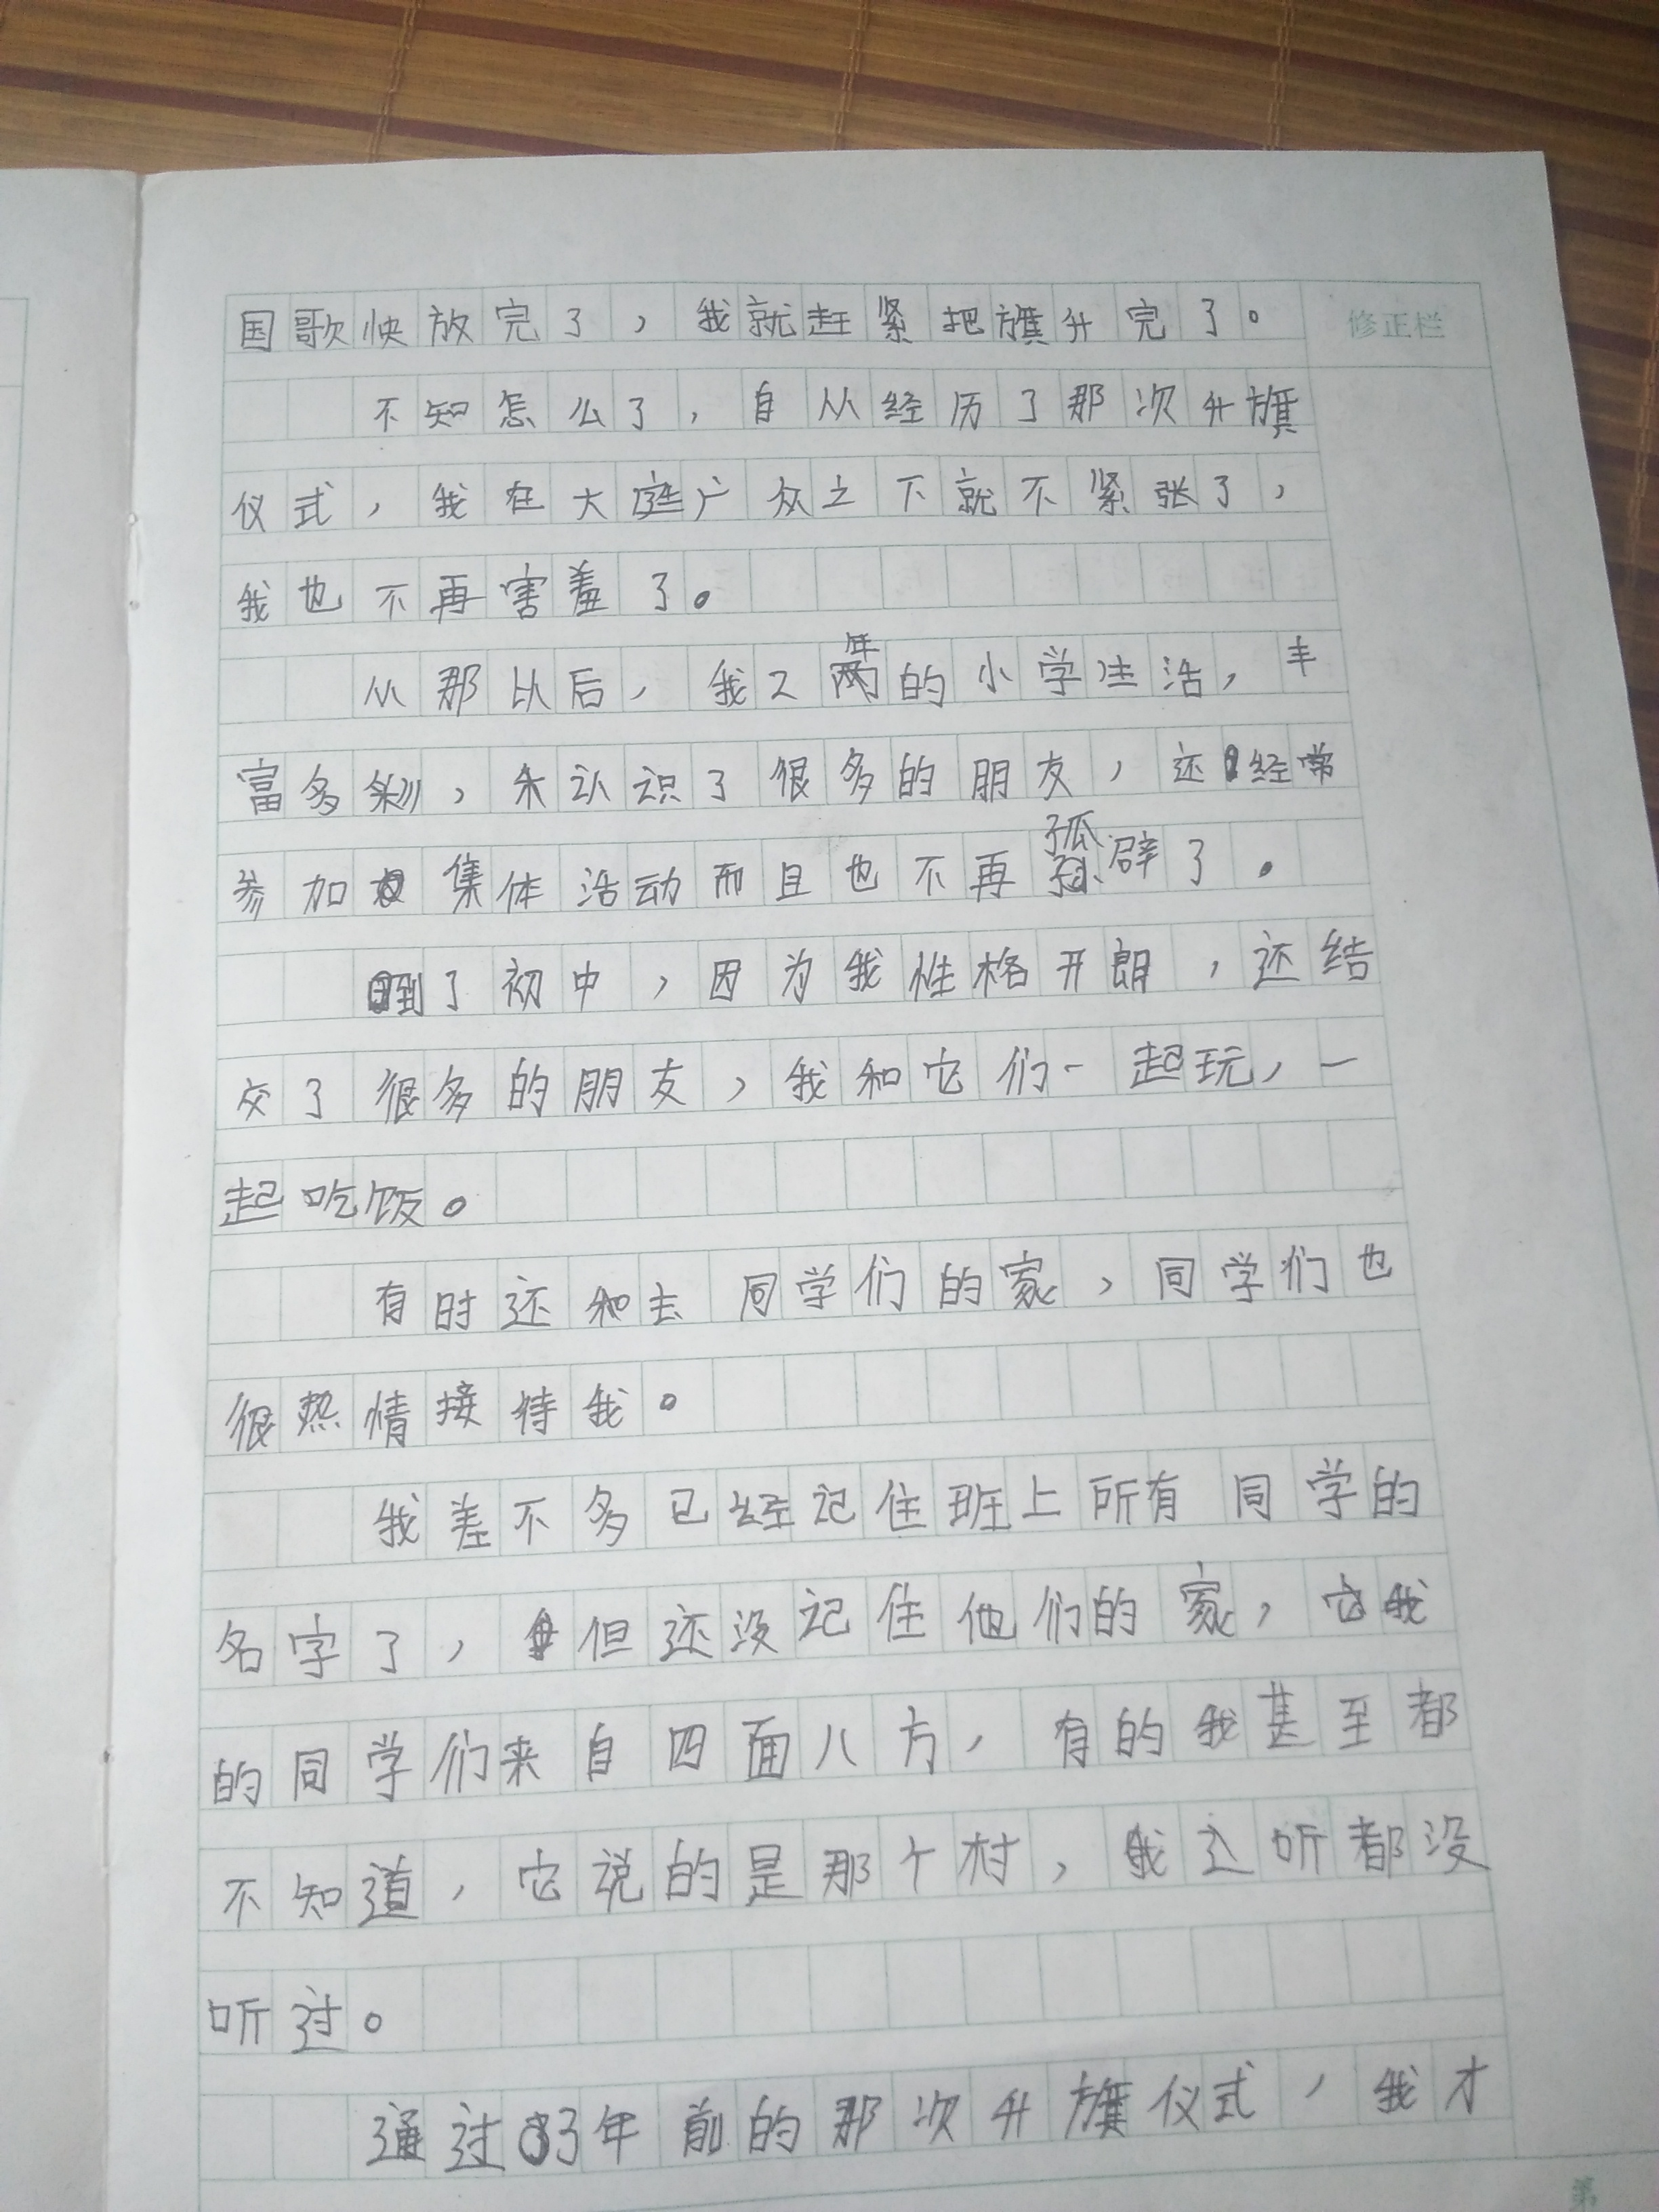 国歌快放完了，我就赶紧把旗升完了。
修正栏
不知怎么了，自从经历了那次升旗
仪式，我在大庭广众之下就不紧张了，
我也不再害羞了。
从那以后，我又两年的小学生活，丰
富多彩，未认识了很多的朋友，还经常
参加集体活动而且也不再孤辟了。
到了初中，因为我性格开朗，还结
交了很多的朋友，我和它们一起玩，一
起吃饭。
有时还和去同学们的家，同学们也
很热情接待我。
我差不多已经记住班上所有同学的
名字了，但还没记住他们的家，它我
的同学们来自四面八方，有的我甚至都
不知道，它说的是那个村，我之听都没
听过。
通过3年前的那次升旗仪式，我才
第